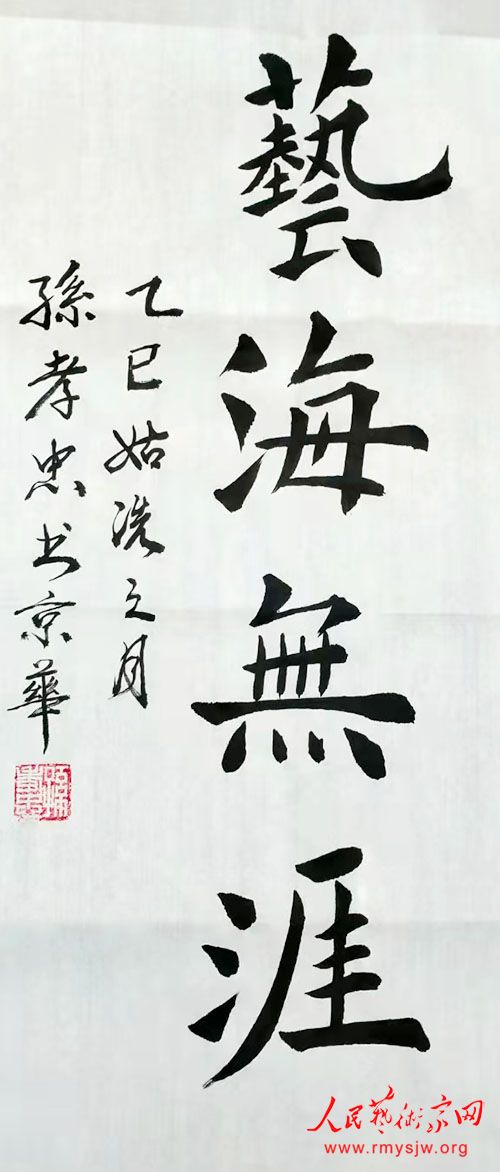 藝海無涯
乙巳姑洗之月
孫孝忠书京華
人民藝術家网
www.rmysjw.org